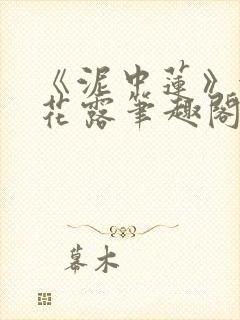 《泥中蓮》
花露筆趣閣
幕木